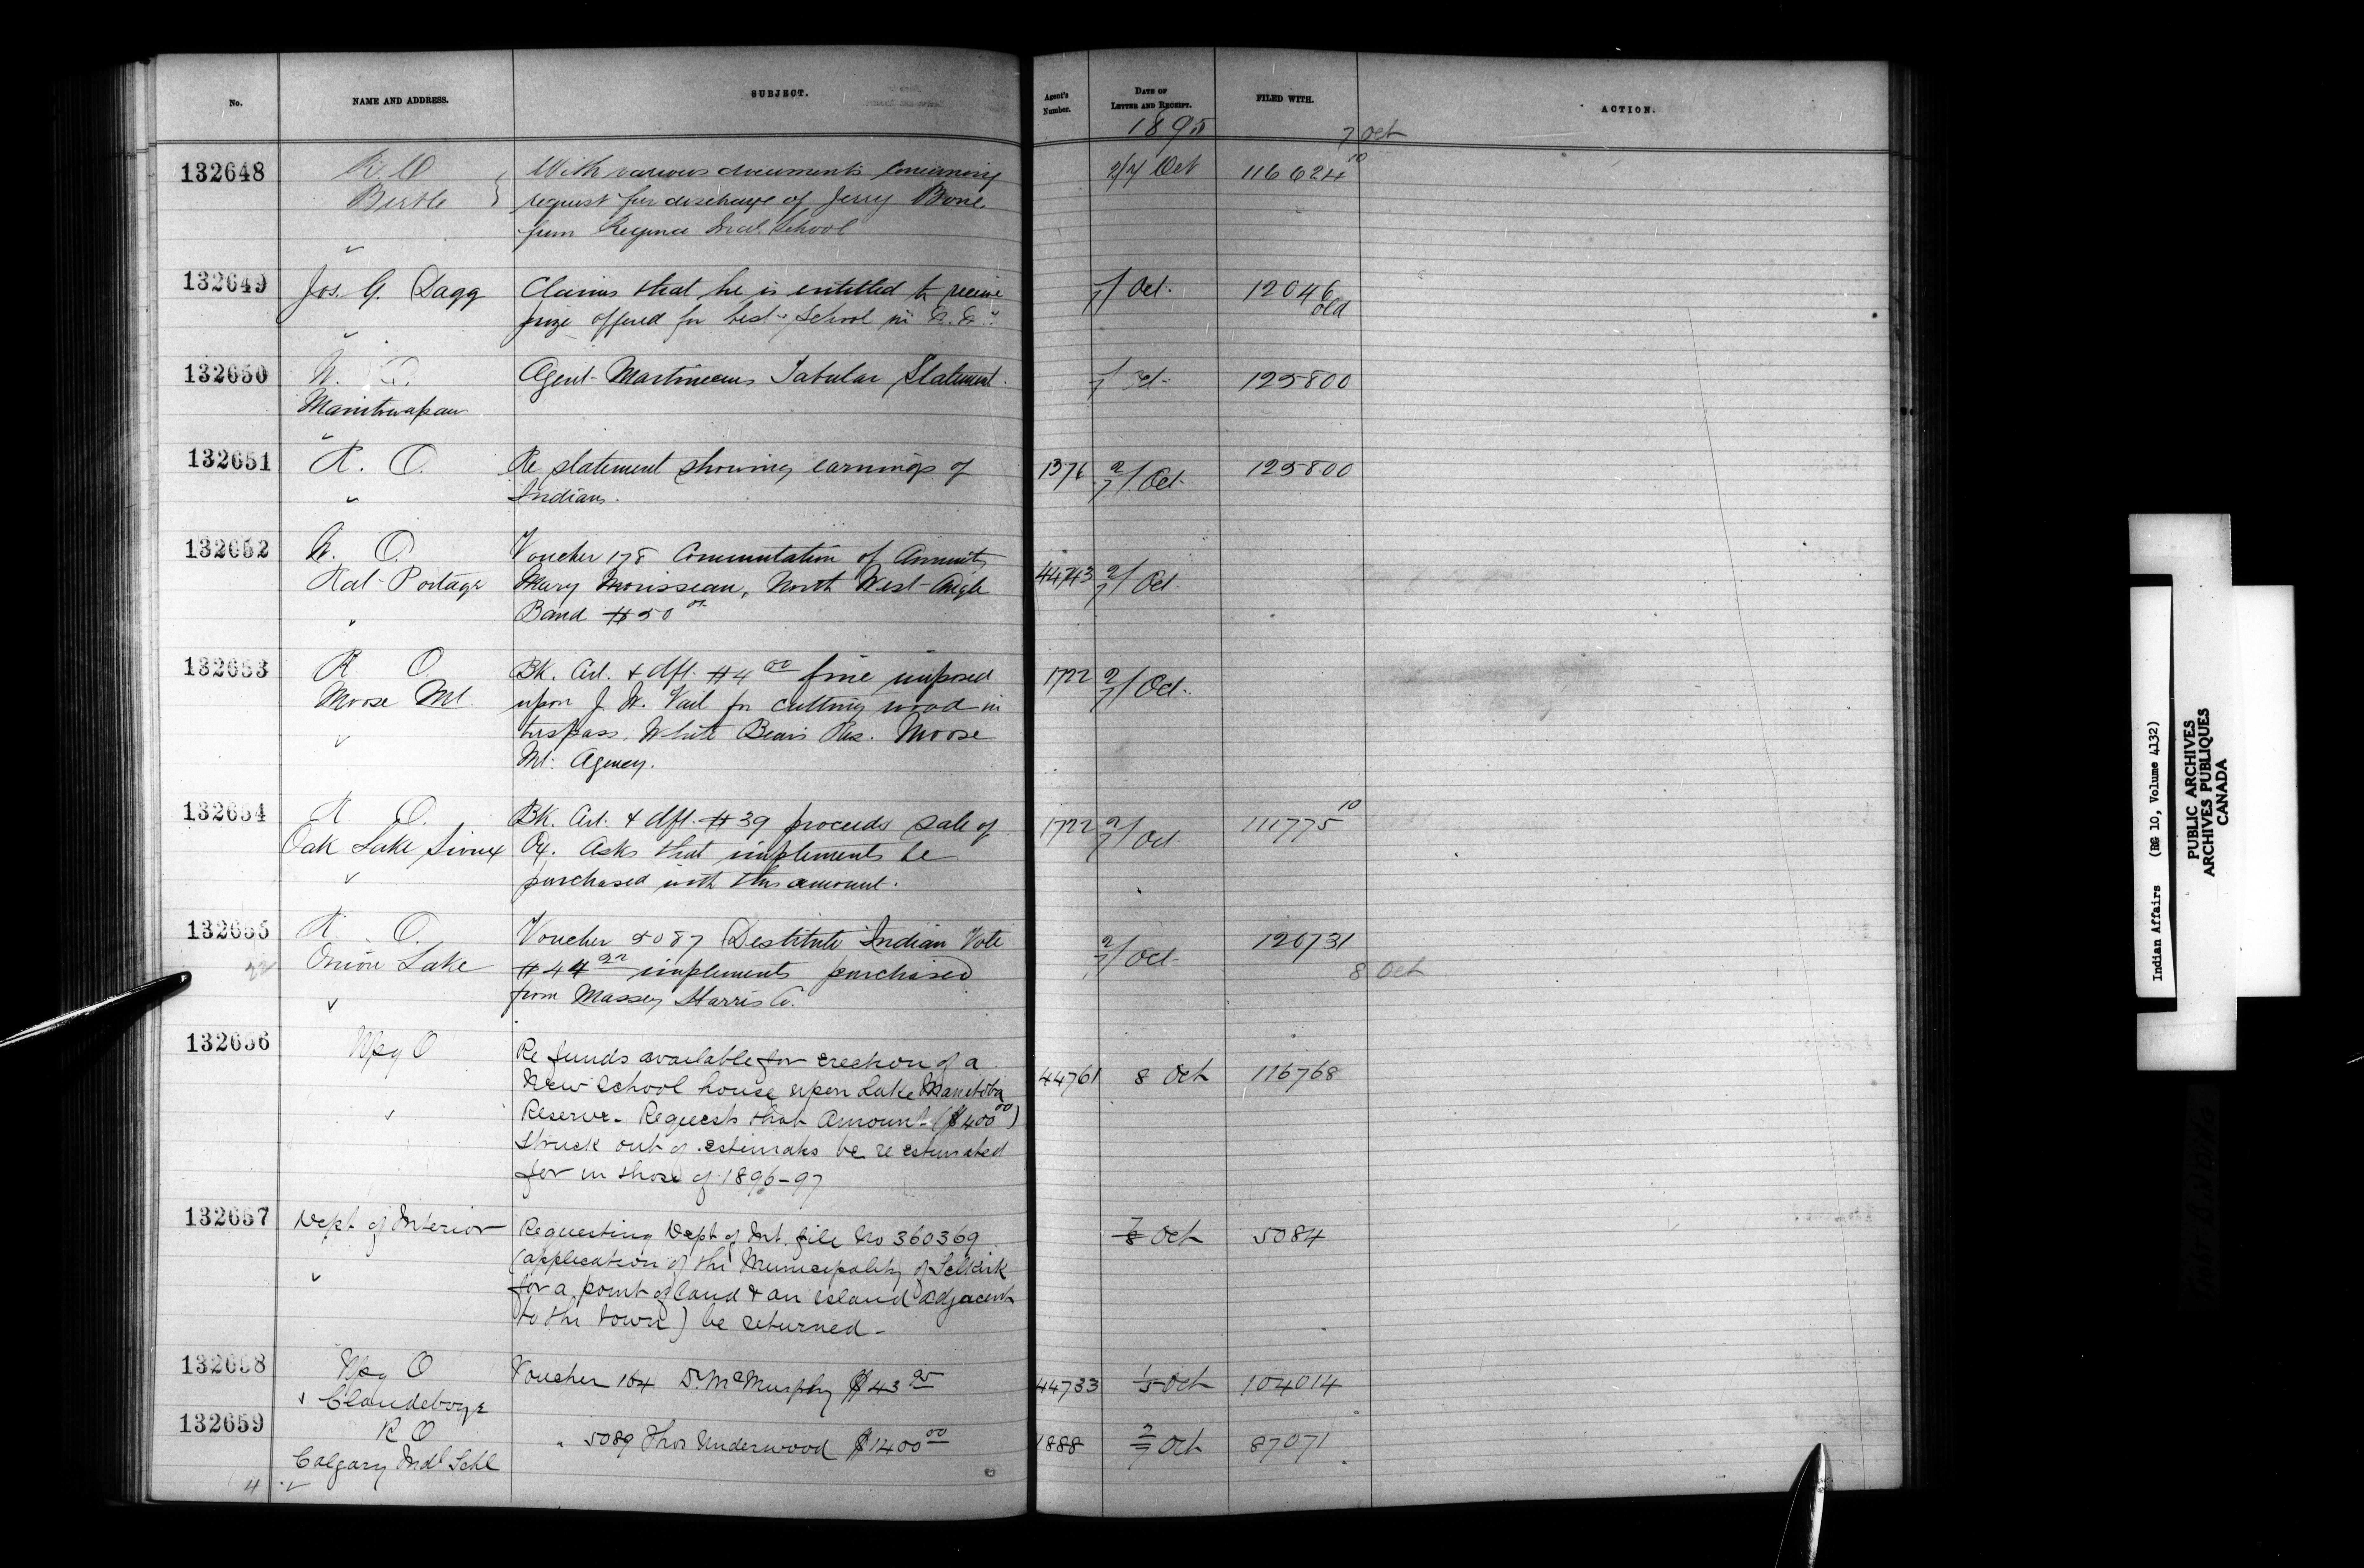 No. NAME AND ADDRESS. SUBJECT. Agent's Number. DATE OF LETTER AND RECEIPT. FILED WITH. ACTION.
1895
7 Oct
132648 R. O With various documents concerning 2/7 Oct 116624 10
Birtle } request for discharge of Jerry Bone
from Regina Ind. School
132649 Jos. G. Dagg Claims that he is entitled to receive /7 Oct. 12046 old
prize offered for best School in
132650 Agent Martineaus Tabular Statement. /7 Oct. 125800
Manitowapaw
132651 R. O. Re statement showing earnings of 1376 2/7 Oct. 125800
Indians.
132652 W. O. Voucher 178 Commutation of Annuity
Rat Portage Mary Morisseau, North West Angle 44743 2/7 Oct.
Band $50 00
132653 R O. Bk. Crt. & dft. $4 00 fine imposed 1722 2/7 Oct.
Moose Mt. upon J. W. Vail for cutting wood in
trespass, White Bears Res. Moose
Mt. Agency.
132654 R O. Bk. Crt. & dft. $39 proceeds sale of 1722 2/7 Oct. 111775 10
Oak Lake Sioux Ox. Asks that implements be
purchased with this amount.
132655 R O. Voucher 5087 Destitute Indian Vote 2/7 Oct. 120731
Onion Lake $44 implements purchased 8 Oct
from Massey Harris Co.
132656 Wpg O Re funds available for erection of a
New School house upon Lake Manitoba 44761 8 Oct 116768
Reserve. Requests that Amount ($400 00)
struck out of estimates be re estimated
for in those of 1896-97
132657 Dept of Interior Requesting Dept of Int. file No 360369 7/8 Oct 5084
(application of the Municipality of Selkirk
for a point of land & an island adjacent
to the town) be returned.
132658 Wpg O Voucher 164 D. McMurphy $43 95 44733 1/5 Oct 104014
Clandeboye
132659 R O " 5089 Thos Underwood $1400 00 1888 2/7 Oct 87071
Calgary Indl Schl
4
Indian Affairs (RG 10, Volume 4132)
PUBLIC ARCHIVES
ARCHIVES PUBLIQUES
CANADA